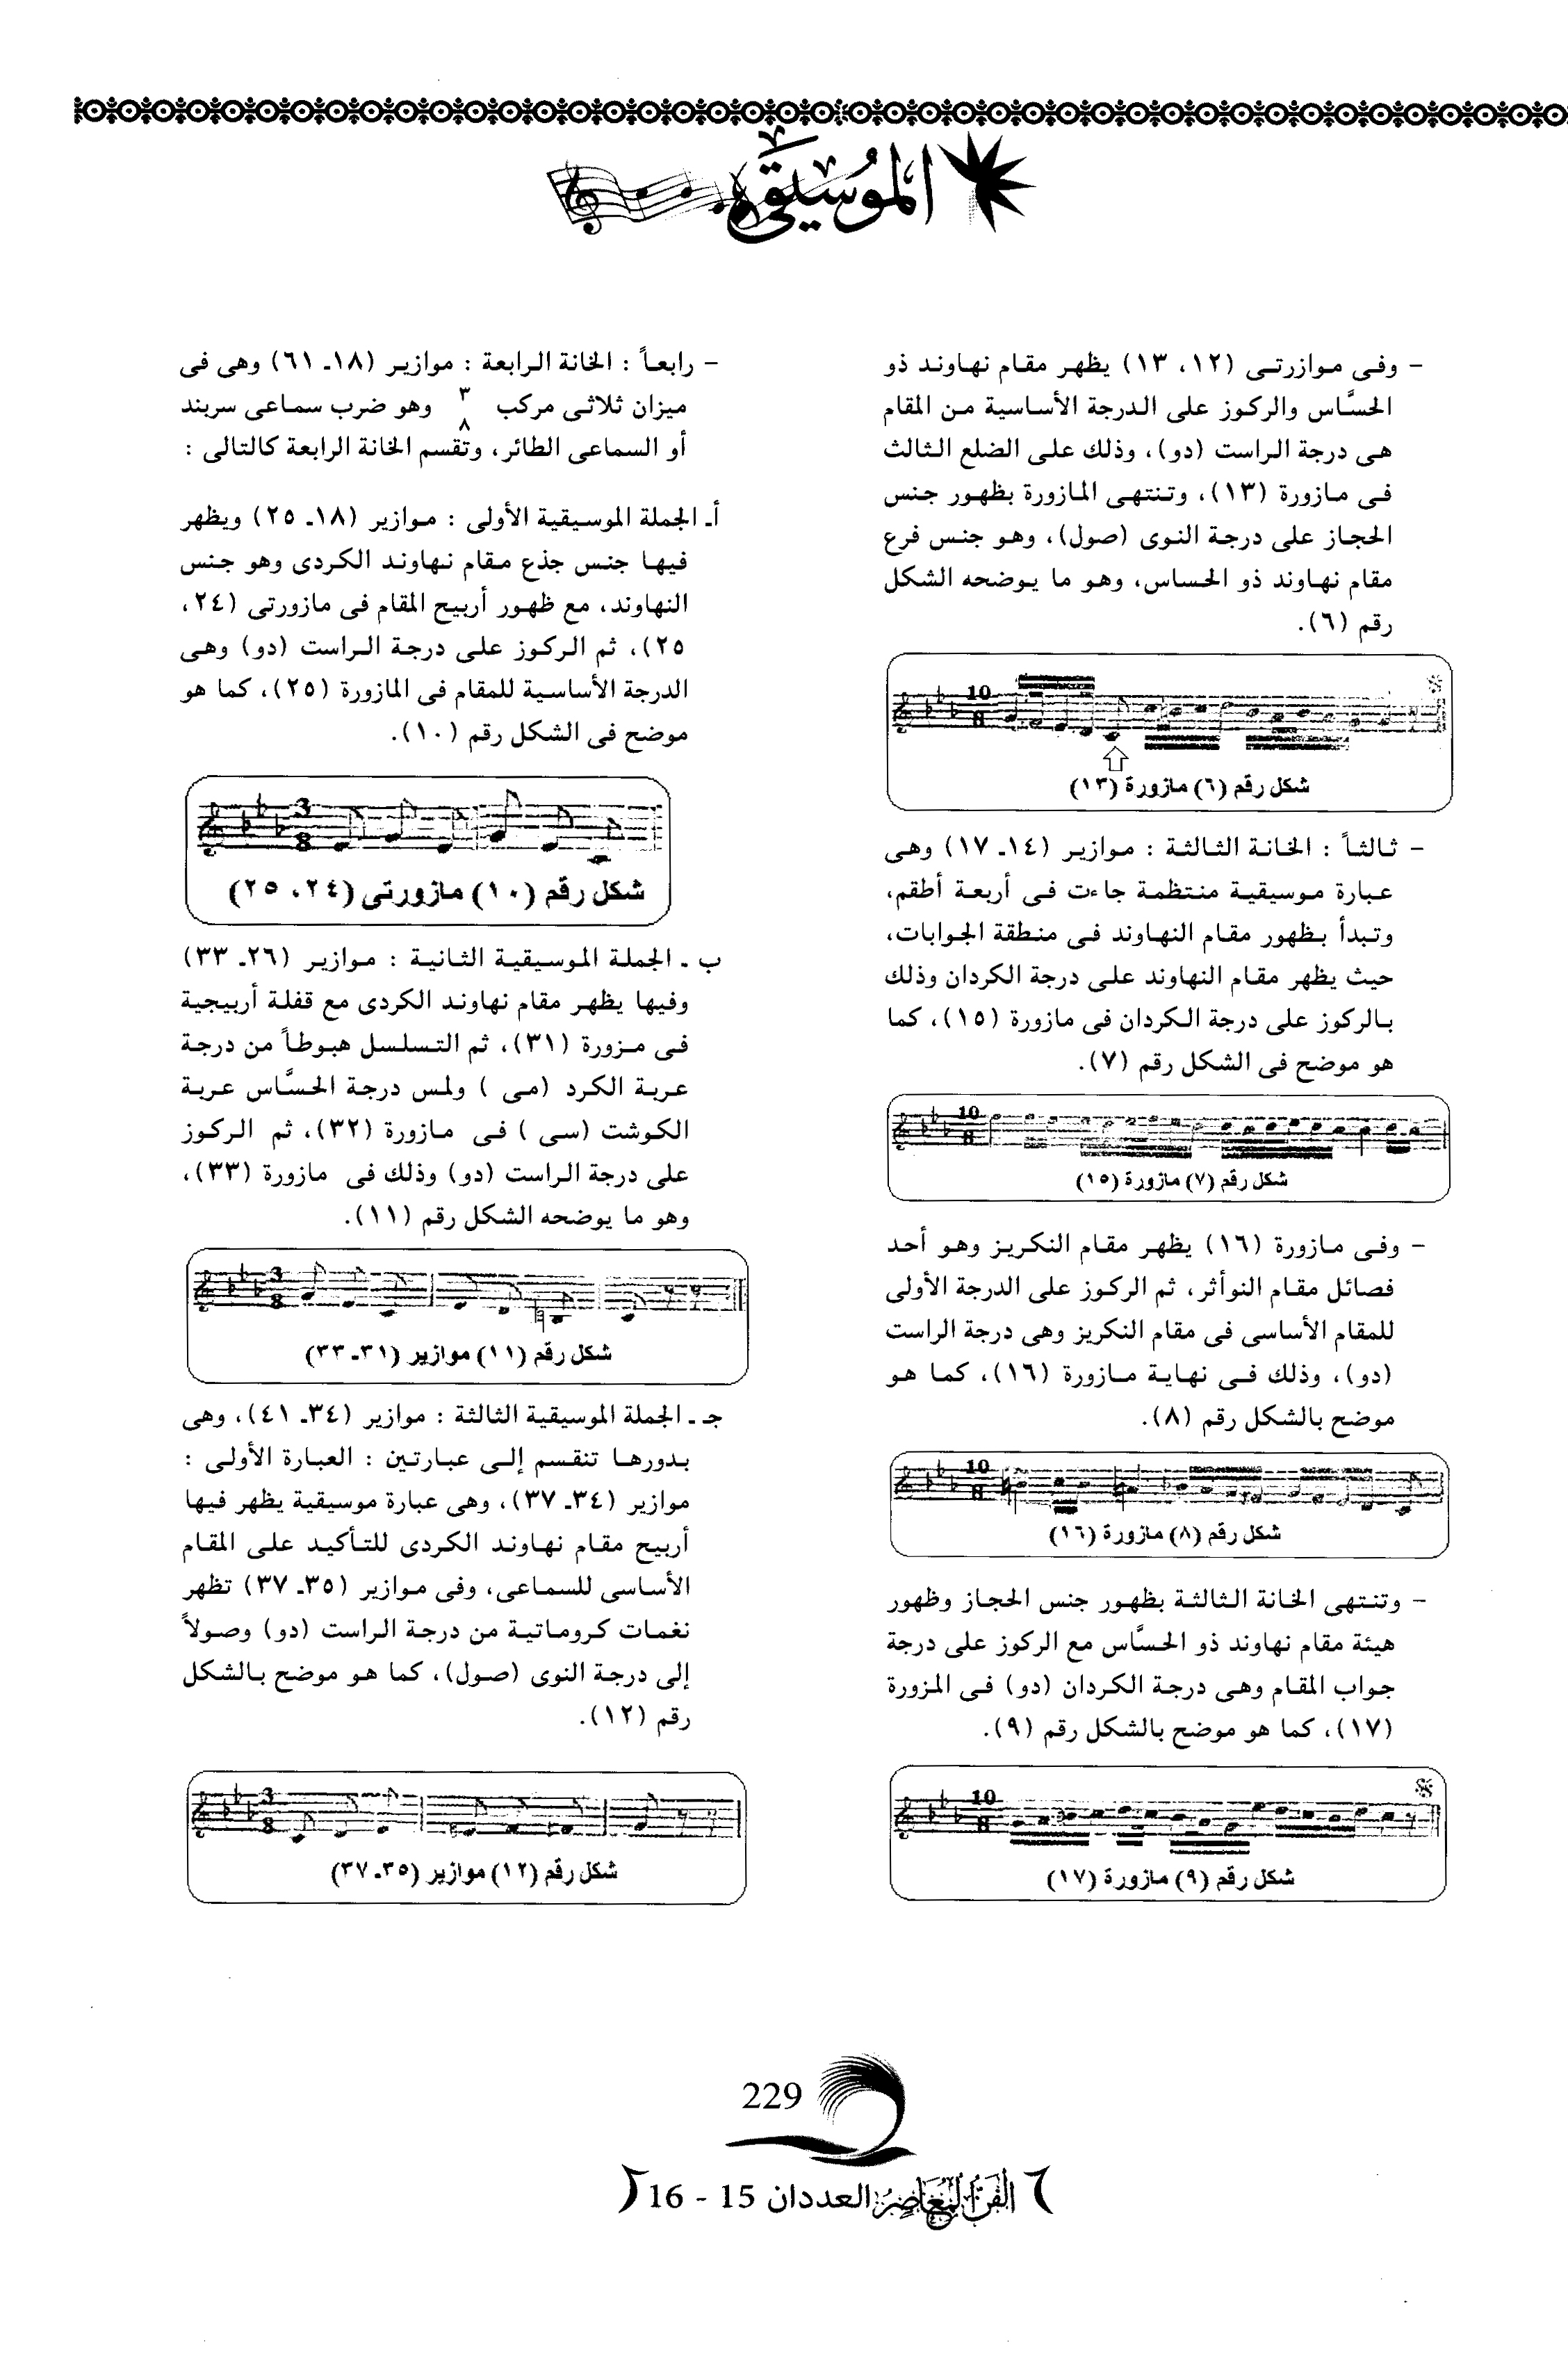 الموسيقى
- وفى موازرتى (١٢، ١٣) يظهر مقام نهاوند ذو
الحسَّاس والركوز على الدرجة الأساسية من المقام
هى درجة الراست (دو)، وذلك على الضلع الثالث
فى مازورة (١٣)، وتنتهى المازورة بظهور جنس
الحجاز على درجة النوى (صول)، وهو جنس فرع
مقام نهاوند ذو الحساس، وهو ما يوضحه الشكل
رقم (٦).
10
8
شكل رقم (٦) مازورة (١٣)
- ثالثاً : الخانة الثالثة : موازير (١٤ـ ١٧) وهى
عبارة موسيقية منتظمة جاءت فى أربعة أطقم،
وتبدأ بظهور مقام النهاوند فى منطقة الجوابات،
حيث يظهر مقام النهاوند على درجة الكردان وذلك
بالركوز على درجة الكردان فى مازورة (١٥)، كما
هو موضح فى الشكل رقم (٧).
10
8
شكل رقم (٧) مازورة (١٥)
- وفى مازورة (١٦) يظهر مقام النكريز وهو أحد
فصائل مقام النوأثر، ثم الركوز على الدرجة الأولى
للمقام الأساسى فى مقام النكريز وهى درجة الراست
(دو)، وذلك فى نهاية مازورة (١٦)، كما هو
موضح بالشكل رقم (٨).
10
8
شكل رقم (٨) مازورة (١٦)
- وتنتهى الخانة الثالثة بظهور جنس الحجاز وظهور
هيئة مقام نهاوند ذو الحسَّاس مع الركوز على درجة
جواب المقام وهى درجة الكردان (دو) فى المزورة
(١٧)، كما هو موضح بالشكل رقم (٩).
10
8
شكل رقم (٩) مازورة (١٧)
- رابعاً : الخانة الرابعة : موازير (١٨ـ ٦١) وهى فى
ميزان ثلاثى مركب ٣/٨ وهو ضرب سماعى سربند
أو السماعى الطائر، وتقسم الخانة الرابعة كالتالى :
أـ الجملة الموسيقية الأولى : موازير (١٨ـ ٢٥) ويظهر
فيها جنس جذع مقام نهاوند الكردى وهو جنس
النهاوند، مع ظهور أربيج المقام فى مازورتى (٢٤،
٢٥)، ثم الركوز على درجة الراست (دو) وهى
الدرجة الأساسية للمقام فى المازورة (٢٥)، كما هو
موضح فى الشكل رقم (١٠).
3
8
شكل رقم (١٠) مازورتى (٢٤، ٢٥)
ب ـ الجملة الموسيقية الثانية : موازير (٢٦ـ ٣٣)
وفيها يظهر مقام نهاوند الكردى مع قفلة أربيجية
فى مزورة (٣١)، ثم التسلسل هبوطاً من درجة
عربة الكرد (مى ) ولمس درجة الحسَّاس عربة
الكوشت (سى ) فى مازورة (٣٢)، ثم الركوز
على درجة الراست (دو) وذلك فى مازورة (٣٣)،
وهو ما يوضحه الشكل رقم (١١).
3
8
شكل رقم (١١) موازير (٣١ـ ٣٣)
جـ ـ الجملة الموسيقية الثالثة : موازير (٣٤ـ ٤١)، وهى
بدورها تنقسم إلى عبارتين : العبارة الأولى :
موازير (٣٤ـ ٣٧)، وهى عبارة موسيقية يظهر فيها
أربيج مقام نهاوند الكردى للتأكيد على المقام
الأساسى للسماعى، وفى موازير (٣٥ـ ٣٧) تظهر
نغمات كروماتية من درجة الراست (دو) وصولاً
إلى درجة النوى (صول)، كما هو موضح بالشكل
رقم (١٢).
3
8
شكل رقم (١٢) موازير (٣٥ـ ٣٧)
229
الفن المعاصر العددان 15 - 16